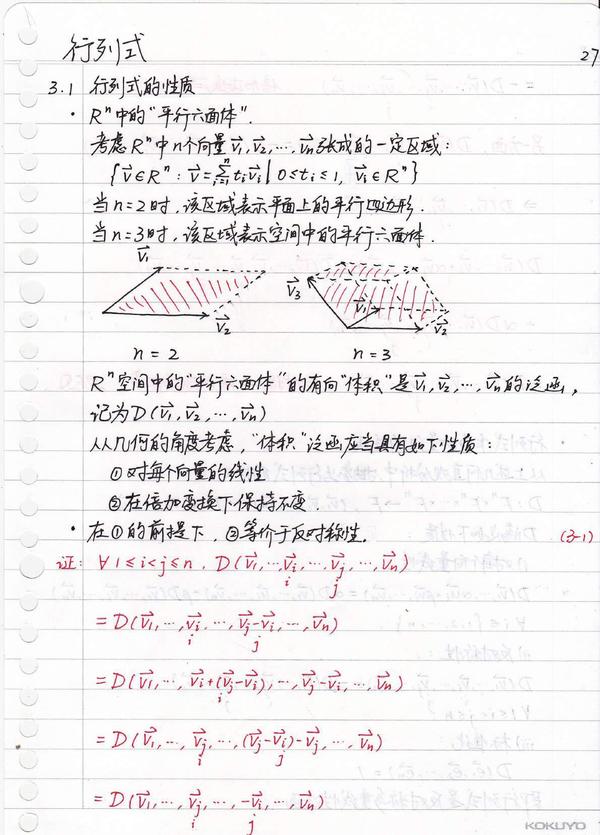 行列式
27
3.1 行列式的性质
· Rⁿ中的"平行六面体".
考虑Rⁿ中n个向量v⃗₁,v⃗₂,…,v⃗ₙ张成的一定区域:
{v⃗∈Rⁿ: v⃗=∑ⁿᵢ₌₁tᵢv⃗ᵢ | 0≤tᵢ≤1, v⃗ᵢ∈Rⁿ}
当n=2时,该区域表示平面上的平行四边形.
当n=3时,该区域表示空间中的平行六面体.
v⃗₁
v⃗₂
v⃗₃
v⃗₁
v⃗₂
n=2
n=3
Rⁿ空间中的"平行六面体"的有向"体积"是v⃗₁,v⃗₂,…,v⃗ₙ的泛函,
记为D(v⃗₁,v⃗₂,…,v⃗ₙ)
从几何的角度考虑,"体积"泛函应当具有如下性质:
①对每个向量的线性
②在倍加变换下保持不变.
· 在①的前提下,②等价于反对称性. (3-1)
证: ∀1≤i<j≤n, D(v⃗₁,…,v⃗ᵢ,…,v⃗ⱼ,…,v⃗ₙ)
i j
=D(v⃗₁,…,v⃗ᵢ,…,v⃗ⱼ-v⃗ᵢ,…,v⃗ₙ)
i j
=D(v⃗₁,…,v⃗ᵢ+(v⃗ⱼ-v⃗ᵢ),…,v⃗ⱼ-v⃗ᵢ,…,v⃗ₙ)
i j
=D(v⃗₁,…,v⃗ⱼ,…,(v⃗ⱼ-v⃗ᵢ)-v⃗ⱼ,…,v⃗ₙ)
i j
=D(v⃗₁,…,v⃗ⱼ,…,-v⃗ᵢ,…,v⃗ₙ)
i j
KOKUYO